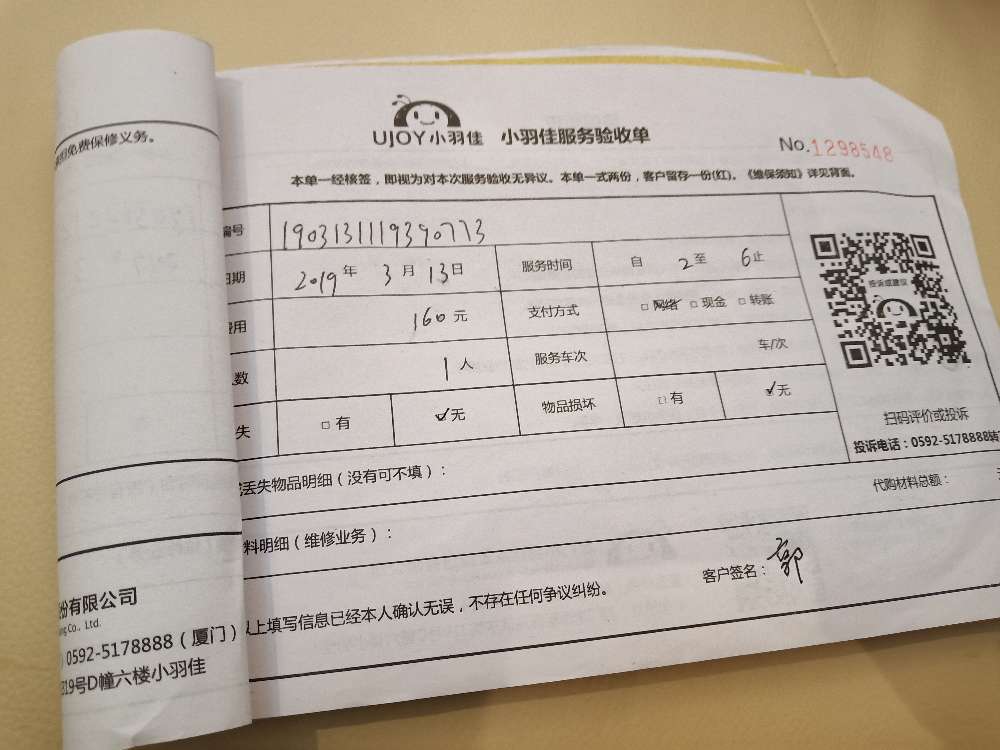 免费保修义务。
UJOY小羽佳 小羽佳服务验收单
No.1298548
本单一经核签，即视为对本次服务验收无异议。本单一式两份，客户留存一份(红)。《维保须知》详见背面。
编号 1903131119390773
日期 2019年3月13日 服务时间 自 2至 6止
费用 160元 支付方式 □网络 □现金 □转账
人数 1人 服务车次 车/次
失 □有 ☑无 物品损坏 □有 ☑无
投诉或建议
扫码评价或投诉
投诉电话：0592-5178888转
丢失物品明细（没有可不填）：
代购材料总额：
料明细（维修业务）：
客户签名：郭
以上填写信息已经本人确认无误，不存在任何争议纠纷。
份有限公司
Co., Ltd.
0592-5178888（厦门）
319号D幢六楼小羽佳